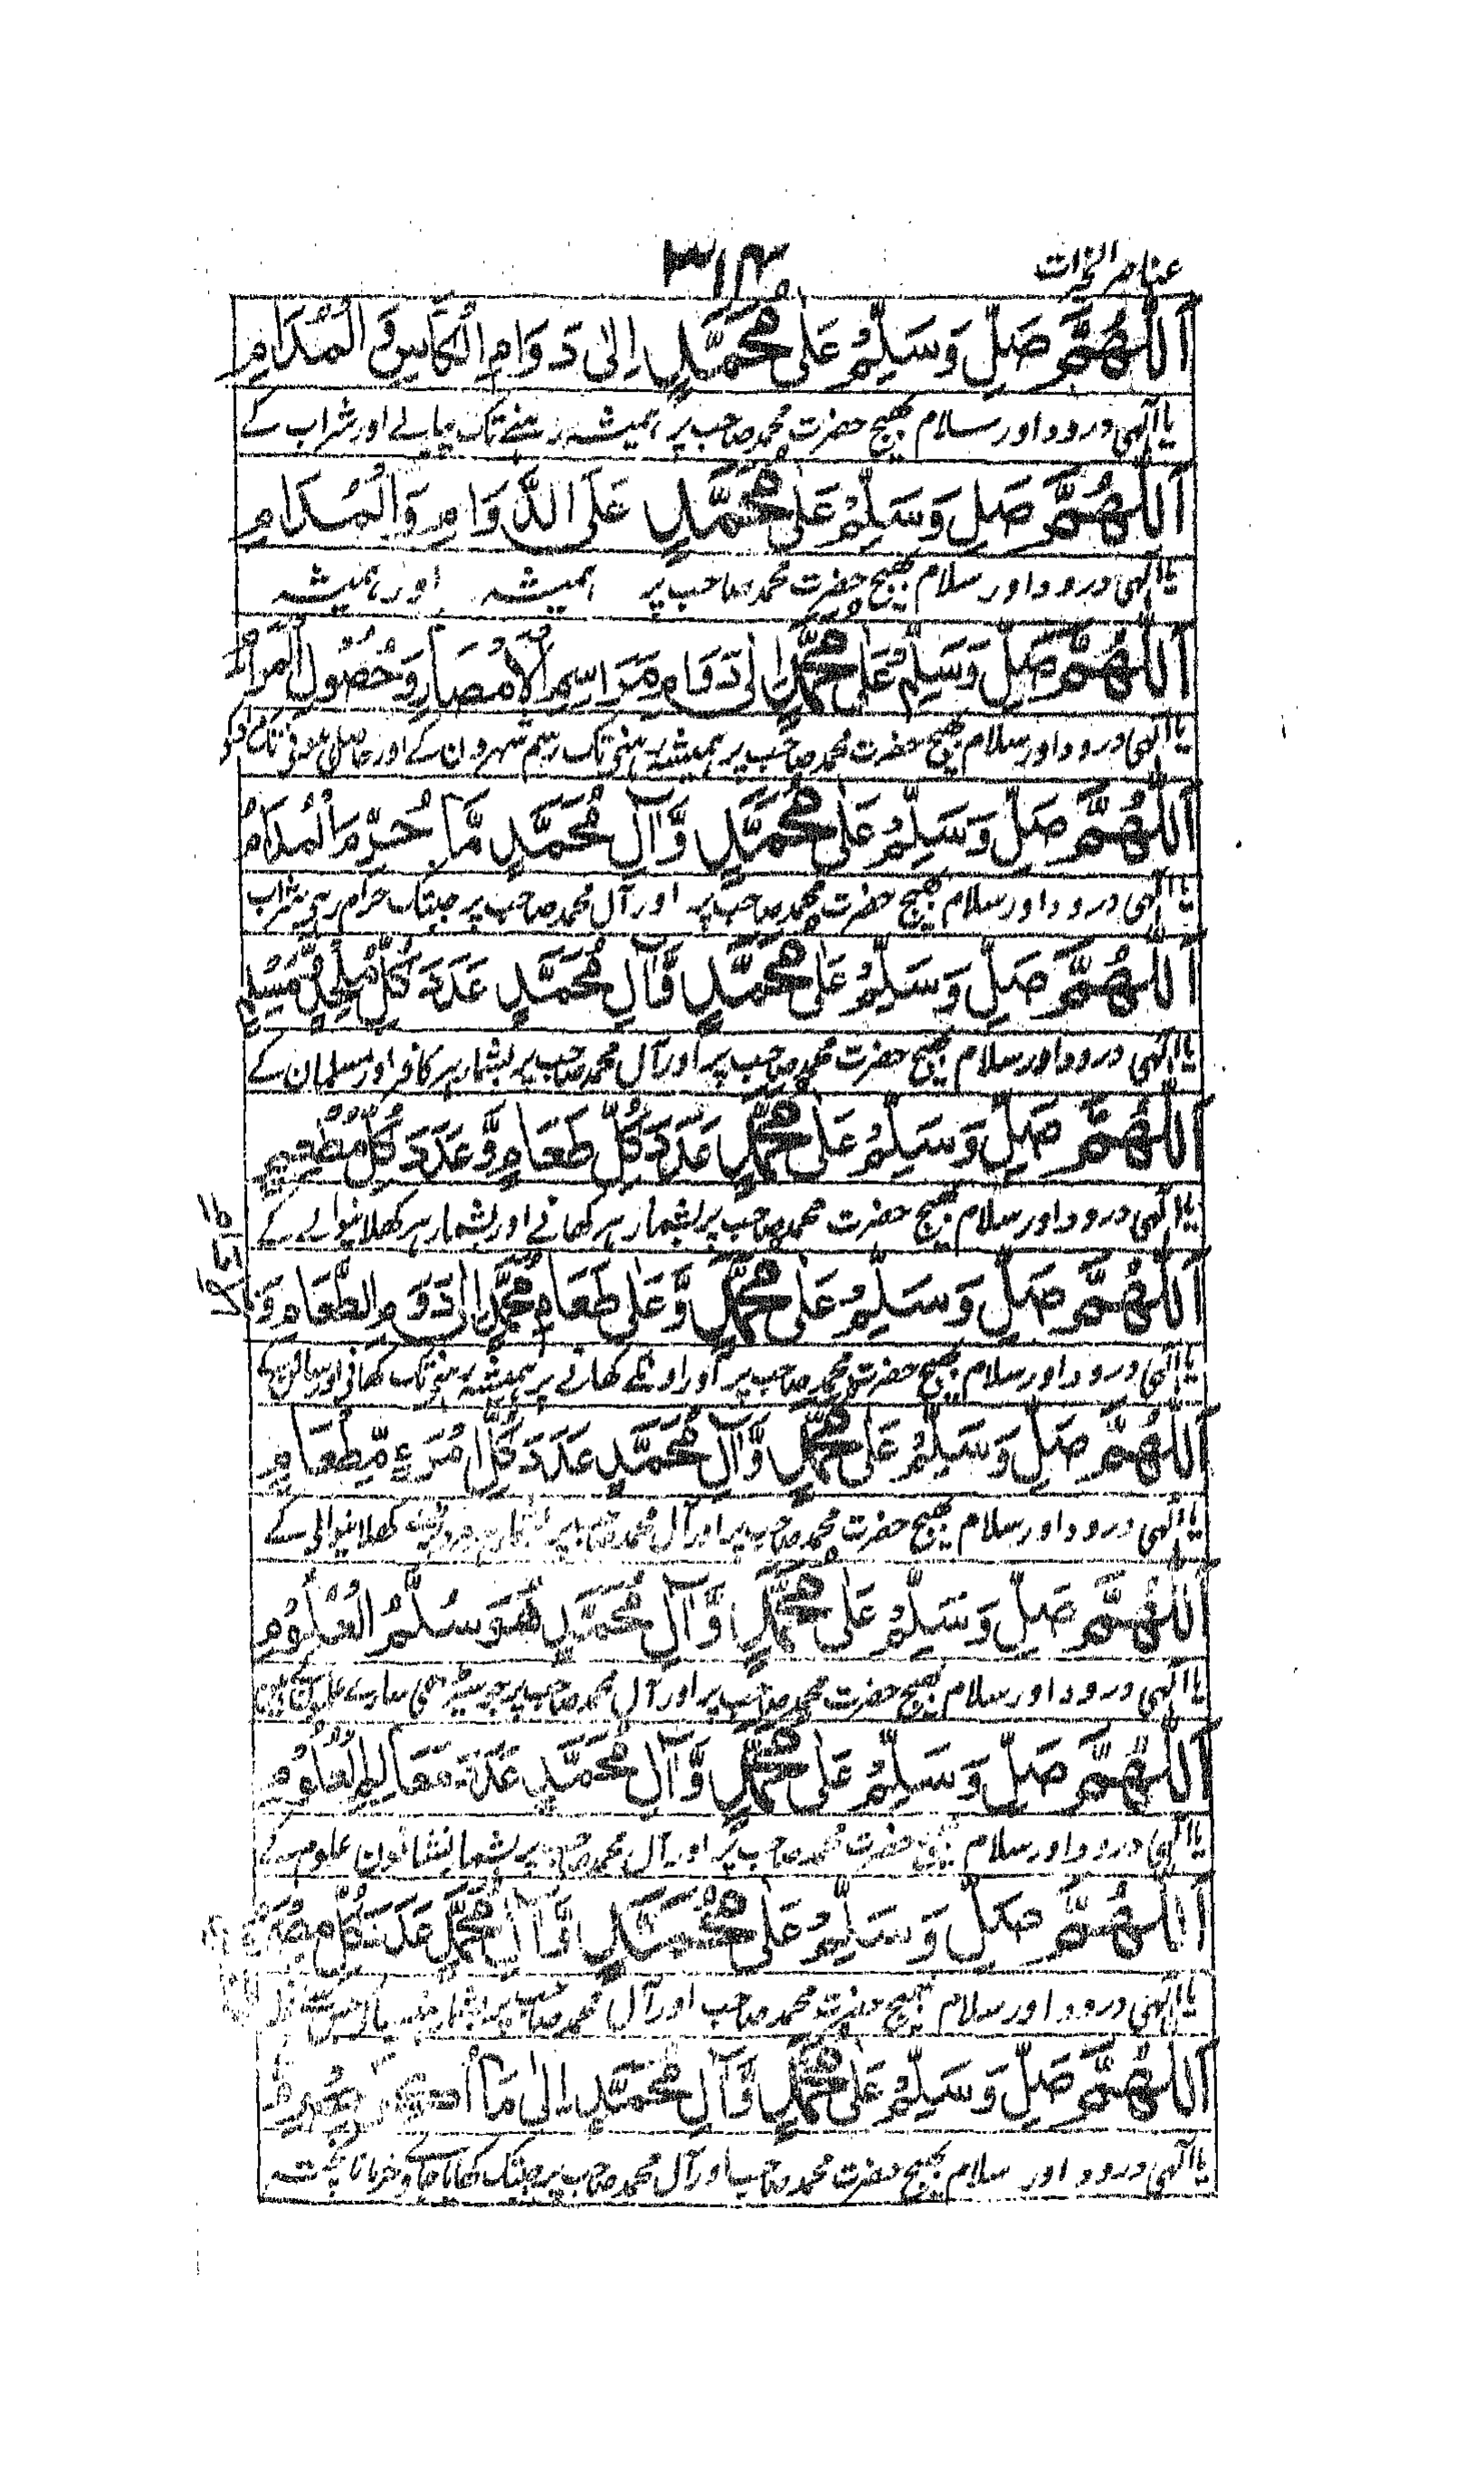 عناصر الخیرات
۳۱۴
اَللّٰهُمَّ صَلِّ وَسَلِّمْ عَلٰى مُحَمَّدٍ اِلٰى دَوَامِ الْكَاْسِ وَ الْمُدَامِ
یا الٰہی درود اور سلام بھیج حضرت محمد صاحب پر ہمیشہ رہنے تک پیالے اور شراب کے
اَللّٰهُمَّ صَلِّ وَسَلِّمْ عَلٰى مُحَمَّدٍ عَلَى الدَّوَامِ وَالْمُدَامِ
یا الٰہی درود اور سلام بھیج حضرت محمد صاحب پر ہمیشہ اور ہمیشہ
اَللّٰهُمَّ صَلِّ وَسَلِّمْ عَلٰى مُحَمَّدٍ اِلٰى دَوَامِ مَرَاسِمِ الْاَمْصَارِ وَحُصُوْلِ الْمَرَامِ
یا الٰہی درود اور سلام بھیج حضرت محمد صاحب پر ہمیشہ رہنے تک رسم شہرون کے اور حاصل ہونے تک
اَللّٰهُمَّ صَلِّ وَسَلِّمْ عَلٰى مُحَمَّدٍ وَّاٰلِ مُحَمَّدٍ مَّا حُرِّمَ الْمُدَامُ
یا الٰہی درود اور سلام بھیج حضرت محمد صاحب پر اور آل محمد صاحب پر جبتک حرام رہی شراب
اَللّٰهُمَّ صَلِّ وَسَلِّمْ عَلٰى مُحَمَّدٍ وَّاٰلِ مُحَمَّدٍ عَدَدَ كُلِّ مُلْحِدٍ وَّمُسْلِمٍ
یا الٰہی درود اور سلام بھیج حضرت محمد صاحب پر اور آل محمد صاحب پر بشمار ہر کافر اور مسلمان کے
اَللّٰهُمَّ صَلِّ وَسَلِّمْ عَلٰى مُحَمَّدٍ عَدَدَ كُلِّ طَعَامٍ وَّعَدَدَ كُلِّ مُطْعِمٍ
یا الٰہی درود اور سلام بھیج حضرت محمد صاحب پر بشمار ہر کھانے اور بشمار ہر کھلانیوالے کے
اَللّٰهُمَّ صَلِّ وَسَلِّمْ عَلٰى مُحَمَّدٍ وَّعَلٰى طَعَامِ مُحَمَّدٍ اِلٰى دَوَامِ الطَّعَامِ وَ
یا الٰہی درود اور سلام بھیج حضرت محمد صاحب پر اور اونکے کھانے پر ہمیشہ رہنے تک کھانے اور
اَللّٰهُمَّ صَلِّ وَسَلِّمْ عَلٰى مُحَمَّدٍ وَّاٰلِ مُحَمَّدٍ عَدَدَ كُلِّ امْرَءٍ مِّطْعَامٍ
یا الٰہی درود اور سلام بھیج حضرت محمد صاحب پر اور آل محمد صاحب پر بشمار ہر مرد کھلانیوالی کے
اَللّٰهُمَّ صَلِّ وَسَلِّمْ عَلٰى مُحَمَّدٍ وَّاٰلِ مُحَمَّدٍ هُوَ سُلَّمُ الْعُلُوْمِ
یا الٰہی درود اور سلام بھیج حضرت محمد صاحب پر اور آل محمد صاحب پر جو سیڑھی سارے علمون کے ہین
اَللّٰهُمَّ صَلِّ وَسَلِّمْ عَلٰى مُحَمَّدٍ وَّاٰلِ مُحَمَّدٍ عَدَدَ مَعَالِمِ الْعُلُوْمِ
یا الٰہی درود اور سلام بھیج حضرت محمد صاحب پر اور آل محمد صاحب پر بشمار نشانون علوم کے
اَللّٰهُمَّ صَلِّ وَسَلِّمْ عَلٰى مُحَمَّدٍ وَّاٰلِ مُحَمَّدٍ عَدَدَ كُلِّ
یا الٰہی درود اور سلام بھیج حضرت محمد صاحب اور آل محمد صاحب پر بشمار
اَللّٰهُمَّ صَلِّ وَسَلِّمْ عَلٰى مُحَمَّدٍ وَّاٰلِ مُحَمَّدٍ اِلٰى مَا
یا الٰہی درود اور سلام بھیج حضرت محمد صاحب اور آل محمد صاحب پر جبتک کھایا جاوے خرما